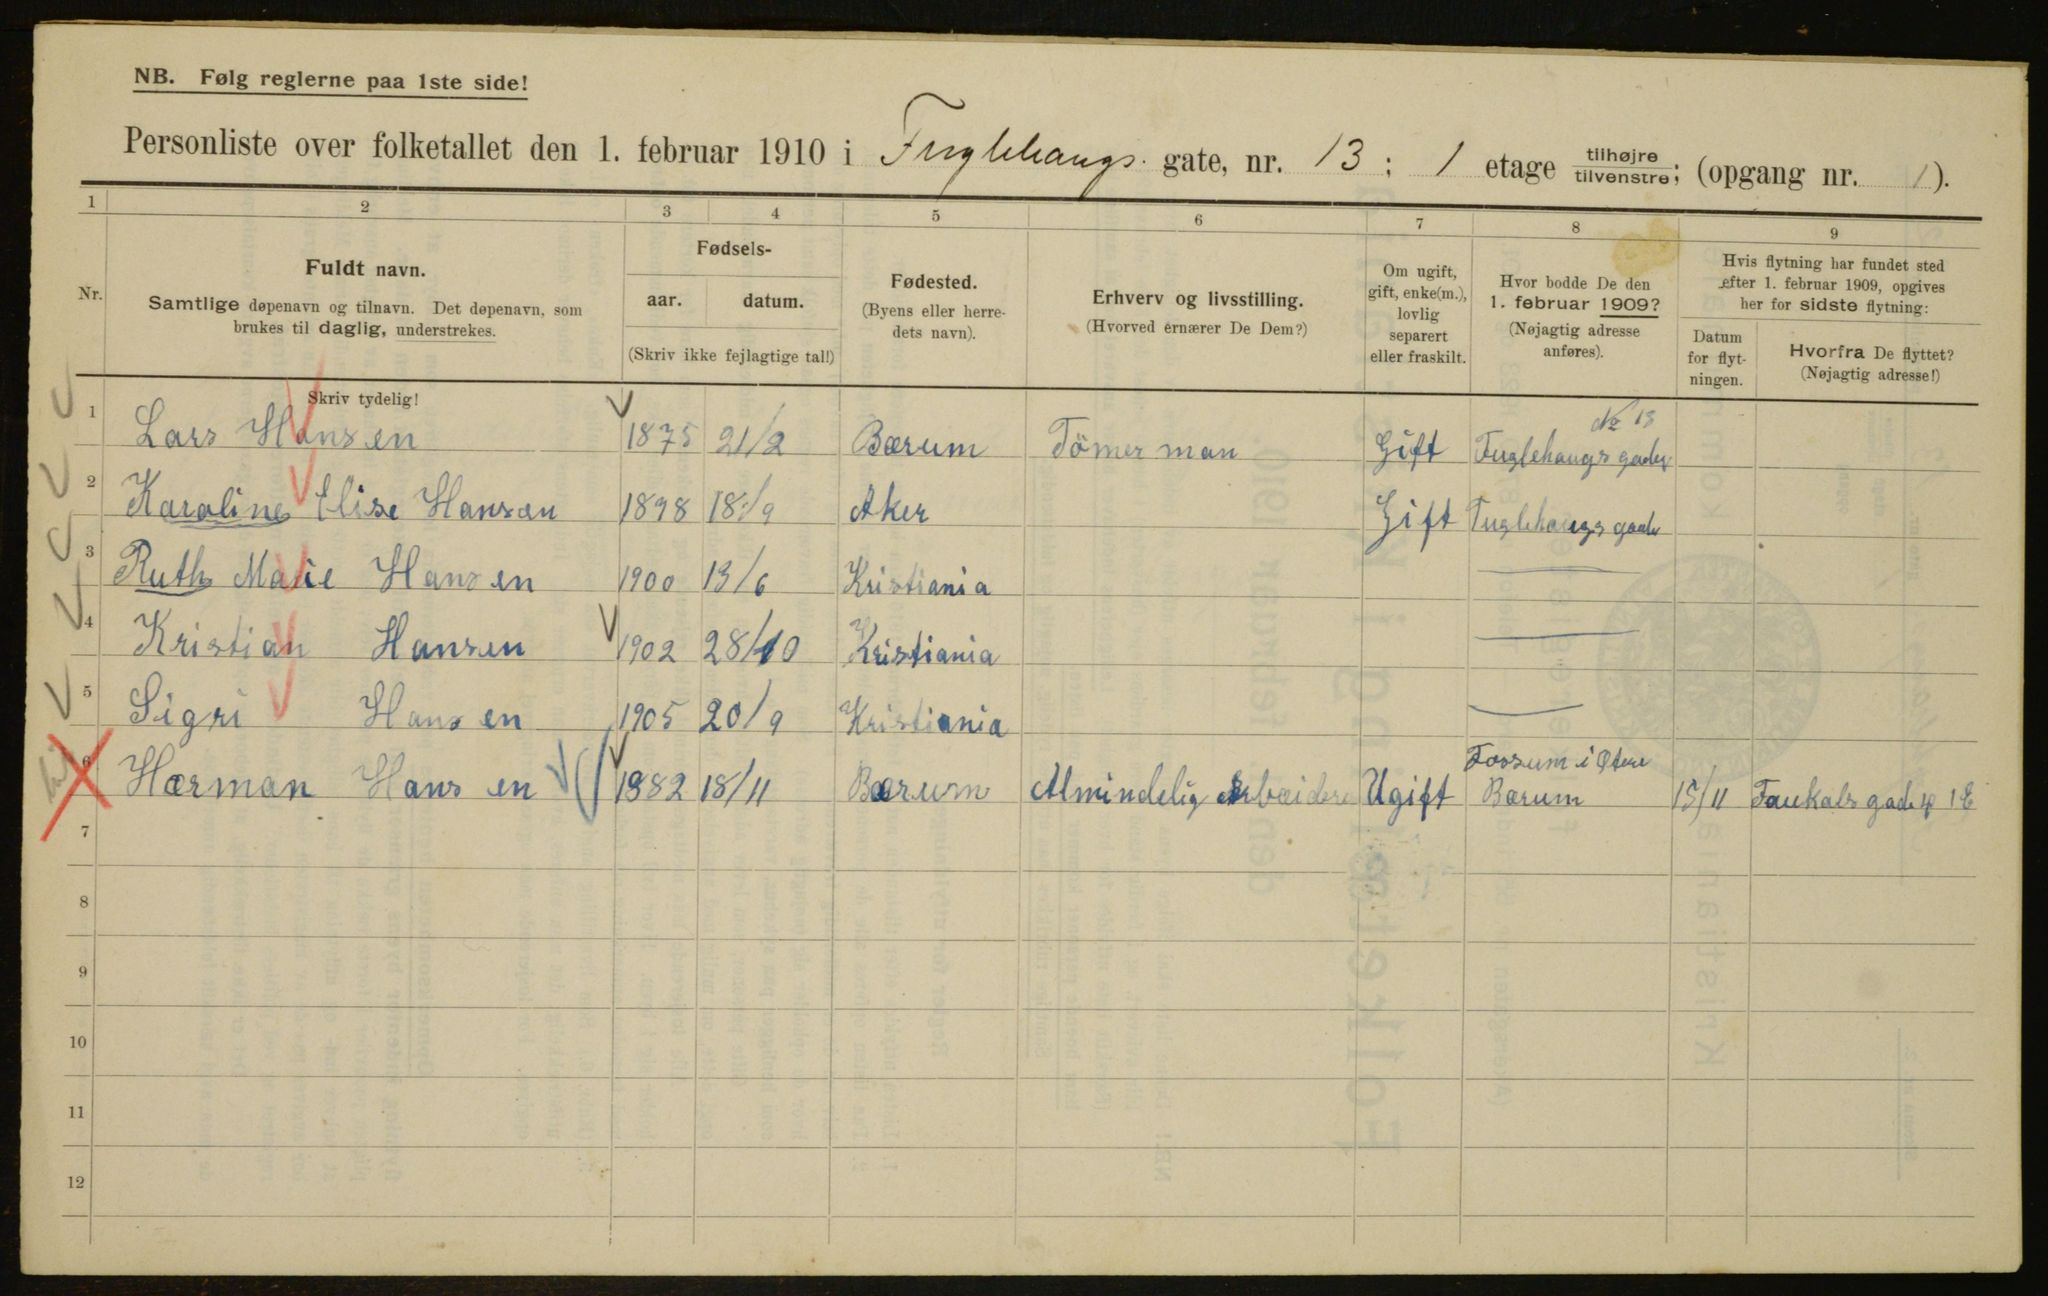 NB. Følg reglerne paa 1ste side!
Personliste over folketallet den 1. februar 1910 i Fuglehaugs gate, nr. 13 ; 1 etage tilhøjre tilvenstre ; (opgang nr. 1).
1 2 3 4 5 6 7 8 9
Nr.
Fuldt navn.
Samtlige døpenavn og tilnavn. Det døpenavn, som
brukes til daglig, understrekes.
Skriv tydelig!
Fødsels-
aar. datum.
(Skriv ikke fejlagtige tal!)
Fødested.
(Byens eller herre-
dets navn).
Erhverv og livsstilling.
(Hvorved ernærer De Dem?)
Om ugift,
gift, enke(m.),
lovlig
separert
eller fraskilt.
Hvor bodde De den
1. februar 1909?
(Nøjagtig adresse
anføres).
Hvis flytning har fundet sted
efter 1. februar 1909, opgives
her for sidste flytning:
Datum
for flyt-
ningen.
Hvorfra De flyttet?
(Nøjagtig adresse!)
No 13
1 Lars Hansen 1875 21/2 Bærum Tömerman Gift Fuglehaugsgaden
2 Karoline Elise Hansen 1898 18/9 Aker Gift Fuglehaugsgade
3 Ruth Marie Hansen 1900 13/6 Kristiania
4 Kristian Hansen 1902 28/10 Kristiania
5 Sigri Hansen 1905 20/9 Kristiania
Fossum i Østere
6 Hærman Hansen 1882 18/11 Bærum Almindelig Arbeidere Ugift Bærum 15/11
7
8
9
10
11
12